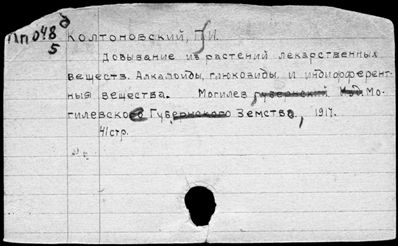 д
Мп 048
5
КОЛТОНОВСКИЙ, П.И.
Довывание из растений лекарственных
веществ. Алкалоиды, глюкозиды, и индифферент-
ныя вещества. Могилев, губернский Изд Мо-
гилевское Губернского Земства, 1917.
41стр.